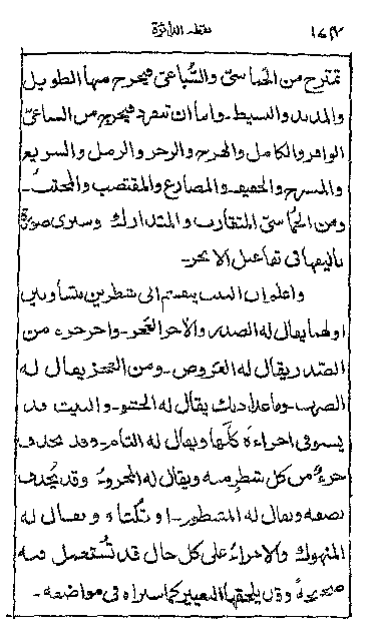 نقطه الدائرة
تمتزج من الخماسي والسُّباعي فيخرج منها الطويل
والمديد والبسيط ـ واما ان تنفرد فيخرج من السباعيّ
الوافر والكامل والهزج والرجز والرمل والسريع
والمنسرح والخفيف ـ والمضارع والمقتضب والمجتثّ ـ
ومن الخماسيّ المتقارب والمتدارك وسترى صورة
تاليفها في تفاعيل الابحر ـ
واعلم ان البيت يقسم الى شطرين متساويين
اولهما يقال له الصدر والآخر العَجُز ـ وآخر جزء من
الصدر يقال له العَروض ـ ومن العَجُز يقال له
الضرب ـ وما عدا ذلك يقال له الحشو ـ والبيت قد
يستوفي اجزاءهُ كلّها ويقال له التام ـ وقد يحذف
جزءٌ من كل شطرٍ منه ويقال له المجزوءُ وقد يُحذف
نصفه ويقال له المشطور ـ او ثُلُثاهُ ويقال له
المنهوك والاجزاءُ على كل حال قد تُستعمل فيه
صحيحةً وقد يلحقها التغيير كما ستراه في مواضعه ـ